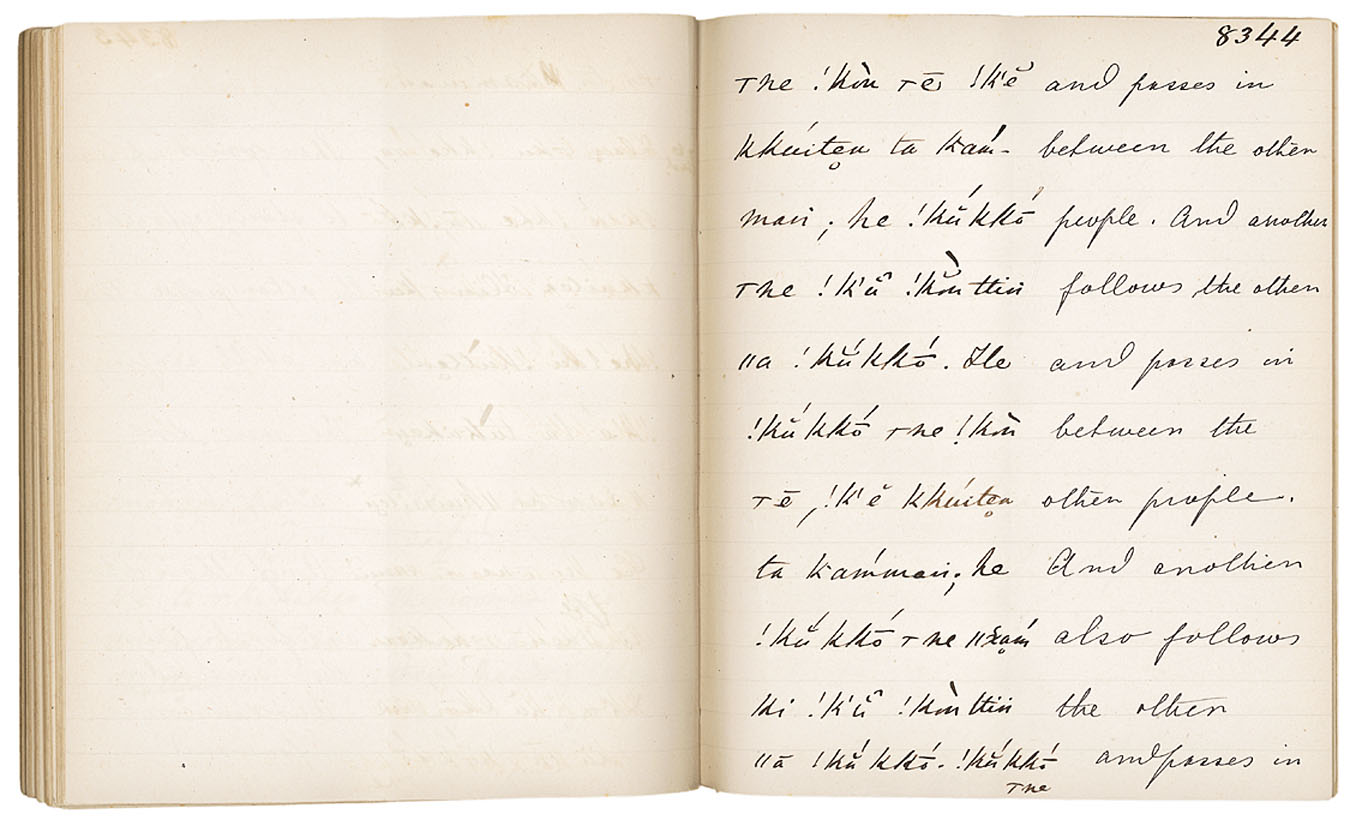 8344
ⲧne !kòn ⲧē !k'ĕ and passes in
kkúitẹn ta kaḿ- between the other
man; he !kŭ́kkṓ people. And another
ⲧne !k'ŭ̂ !kŏ̀nttin follows the other
ııa !kŭ́kkṓ. He and passes in
!kŭ́kkṓ ⲧne !kòn between the
ⲧē, !k'ĕ kkúitẹn other people.
ta kaḿman; he And another
!kŭ́kkṓ ⲧne also follows
ki !k'ŭ̂ !kònttin the other
ııā !kŭ́kkṓ. !kŭ́kkṓ and passes in
ⲧne